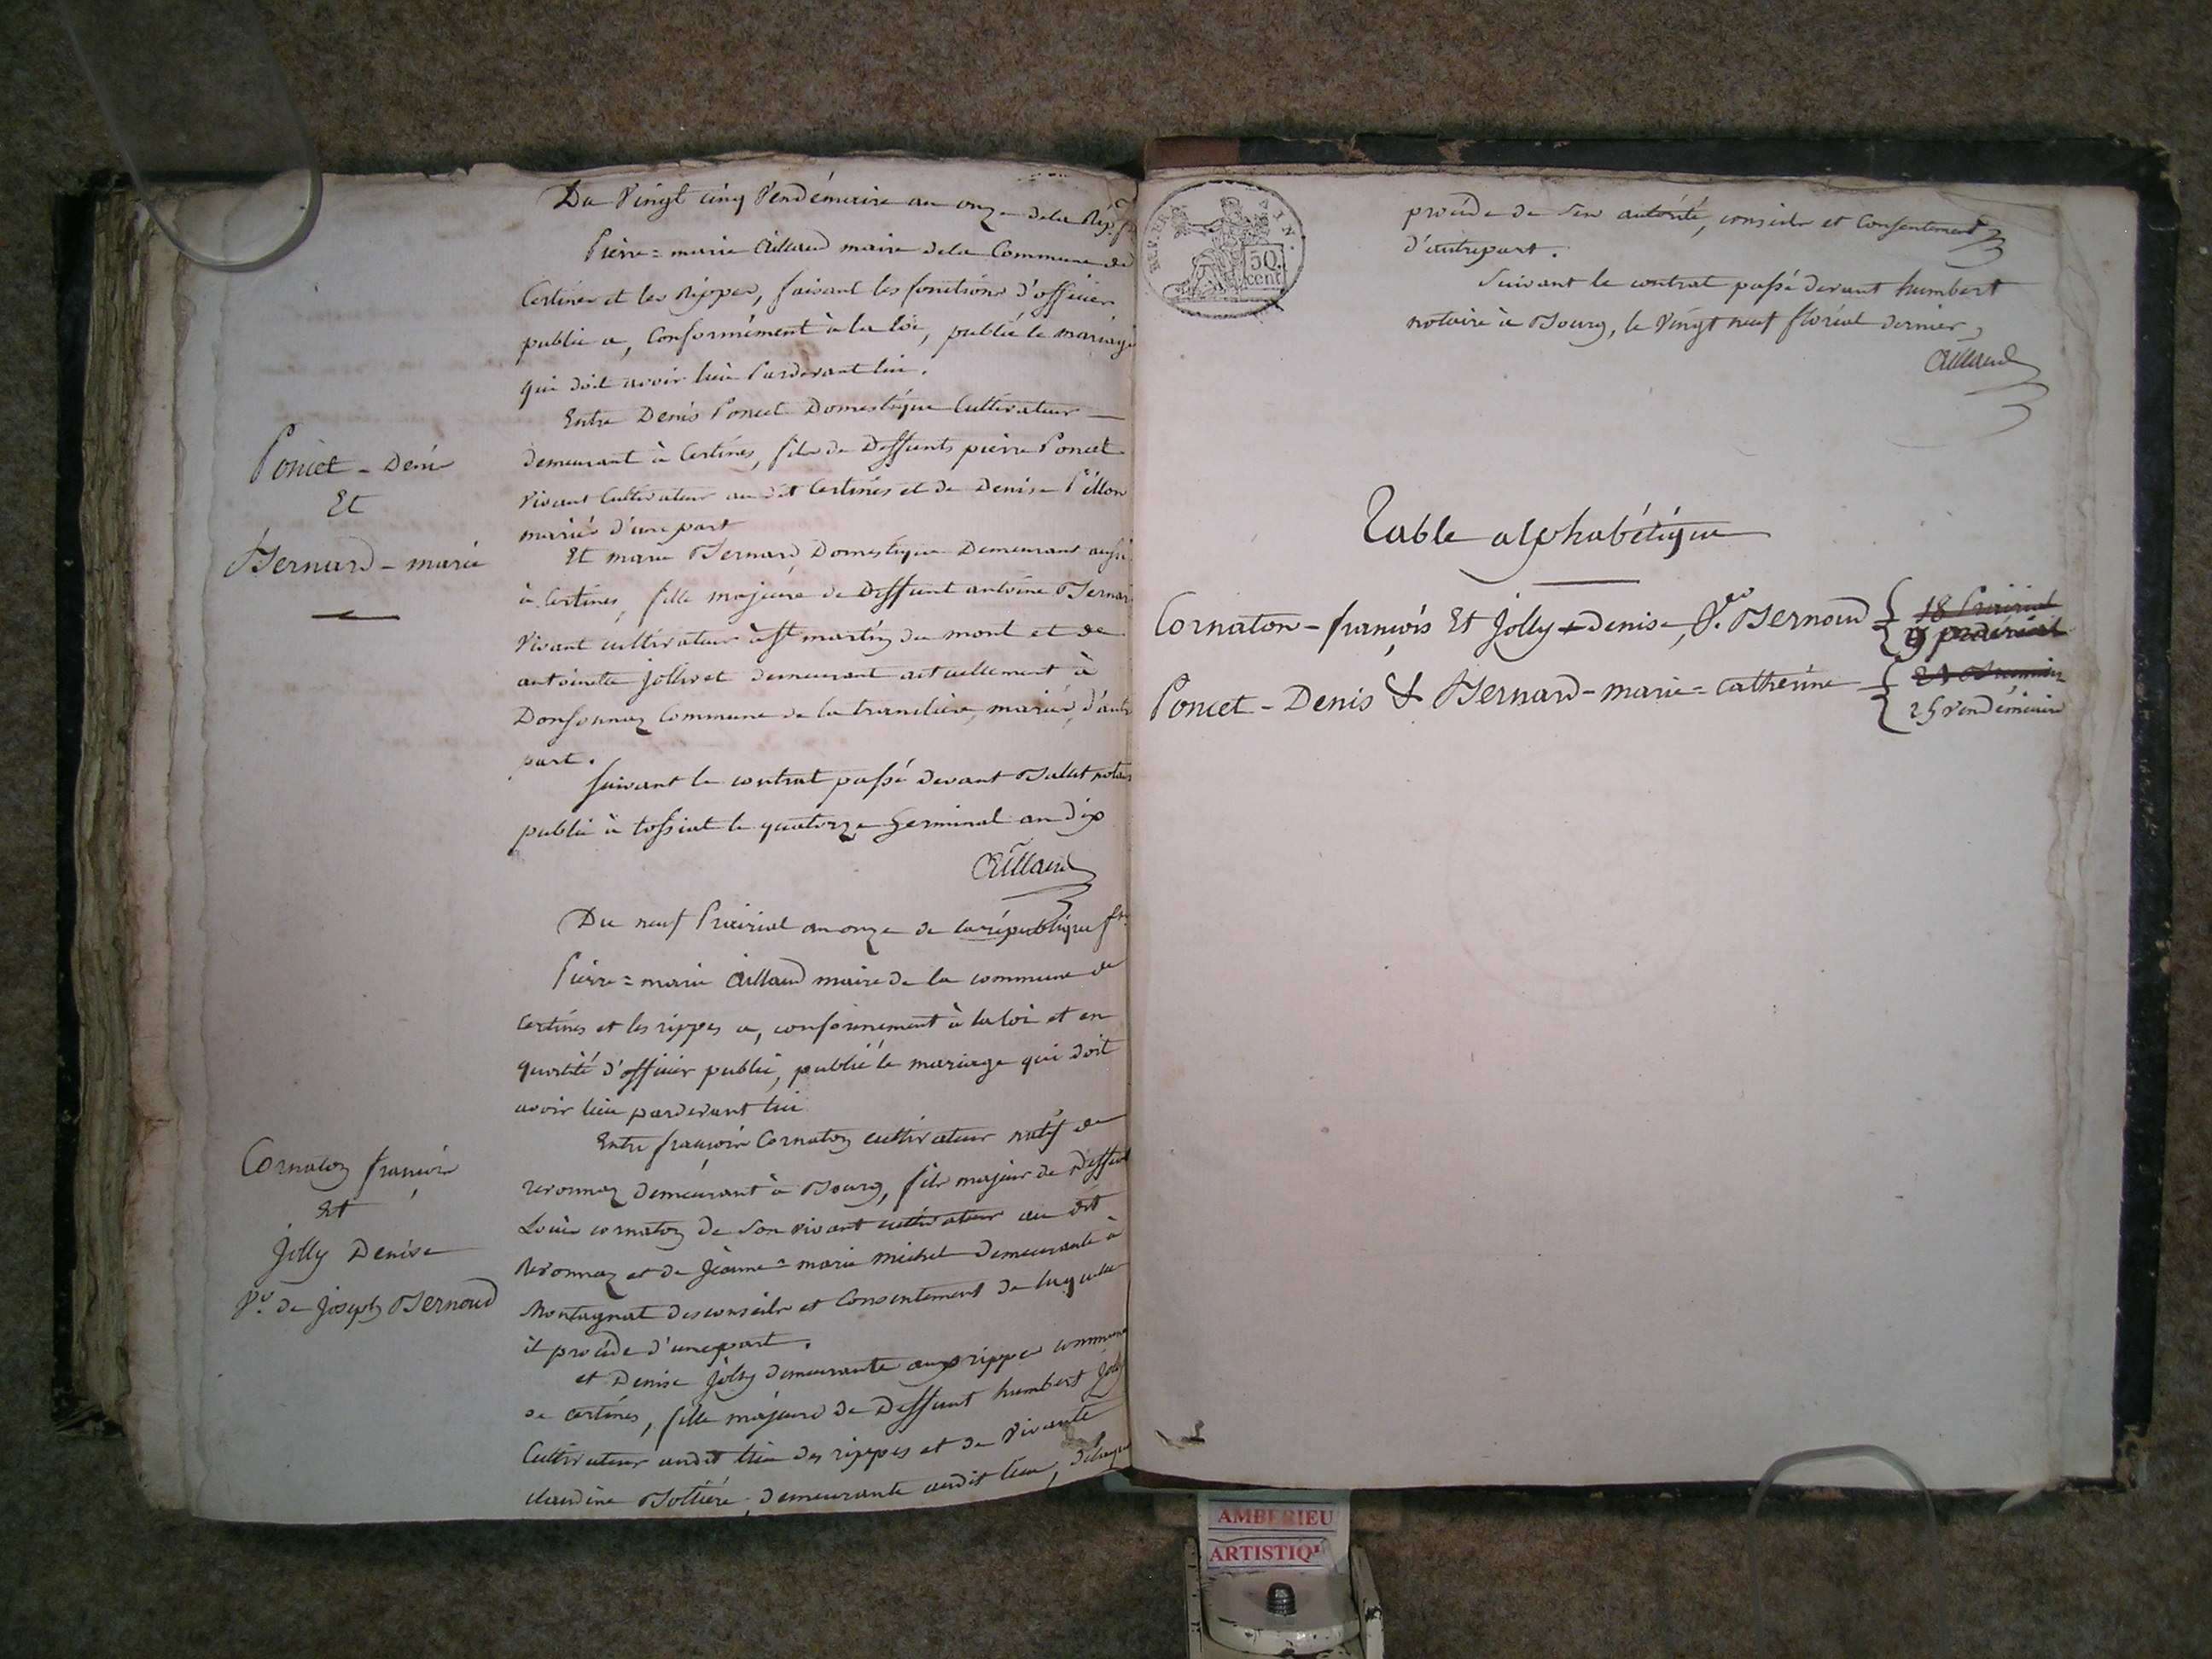 Du Vingt cinq Vendémiaire an onze de la Rép. f
Pierre = marie Aillaud maire de la Commune de
Certines et les Rippes, faisant les fonctions d'officier
public a, Conformément à la loi, publié le mariage
qui doit avoir lieu Pardevant lui.
Entre Denis Poncet Domestique Cultivateur
demeurant à Certines, fils de Deffunts pierre Poncet
Vivant Cultivateur au dit Certines et de Denise Pillon
mariés d'une part
Poncet - Denis
Et
Bernard - marie
Et marie Bernard, Domestique Demeurant aussi
à Certines, fille majeure de Deffunt antoine Bernard
Vivant cultivateur à St martin du mont et de
antoinette jollivet demeurant actuellement à
Donsonnaz Commune de la tranclière, mariés, d'autre
part.
suivant le contrat passé devant Ballet notaire
public à tossiat le quatorze Germinal an Dix
Aillaud
Du neuf Prairial an onze de la république f
Pierre = marie Aillaud maire de la commune de
Certines et les rippes a, conformement à la loi et en
qualité d'officier public, publié le mariage qui doit
avoir lieu pardevant lui
Entre françois Cornaton cultivateur natif de
revonnaz demeurant à Bourg, fils majeur de Deffunt
Louis cornaton de Son vivant cultivateur au dit
Revonnaz et de Jeanne = marie michel demeurante à
Montagnat des conseils et Consentement de laquelle
il procède d'une part.
Cornaton françois
Et
Jolly Denise
Ve. de Joseph Bernoud
et Denise Jolly demeurante aux rippes commune
de certines, fille majeure de Deffunt humbert Jolly
Cultivateur audit lieu des rippes et de Vivante
claudine Bottière demeurante audit lieu,
REP. FRA.
50
cent
procède de Son autorité, conseils et Consentement
d'autrepart.
Suivant le contrat passé devant humbert
notaire à Bourg, le Vingt neuf floréal dernier,
Aillaud
Table alphabétique
Cornaton - françois Et Jolly - Denise, Ve. Bernoud { 18 Prairial
9 prairial
Poncet - Denis & Bernard - marie = Catherine { 21 Brumaire
25 vendémiaire
AMBERIEU
ARTISTIQU